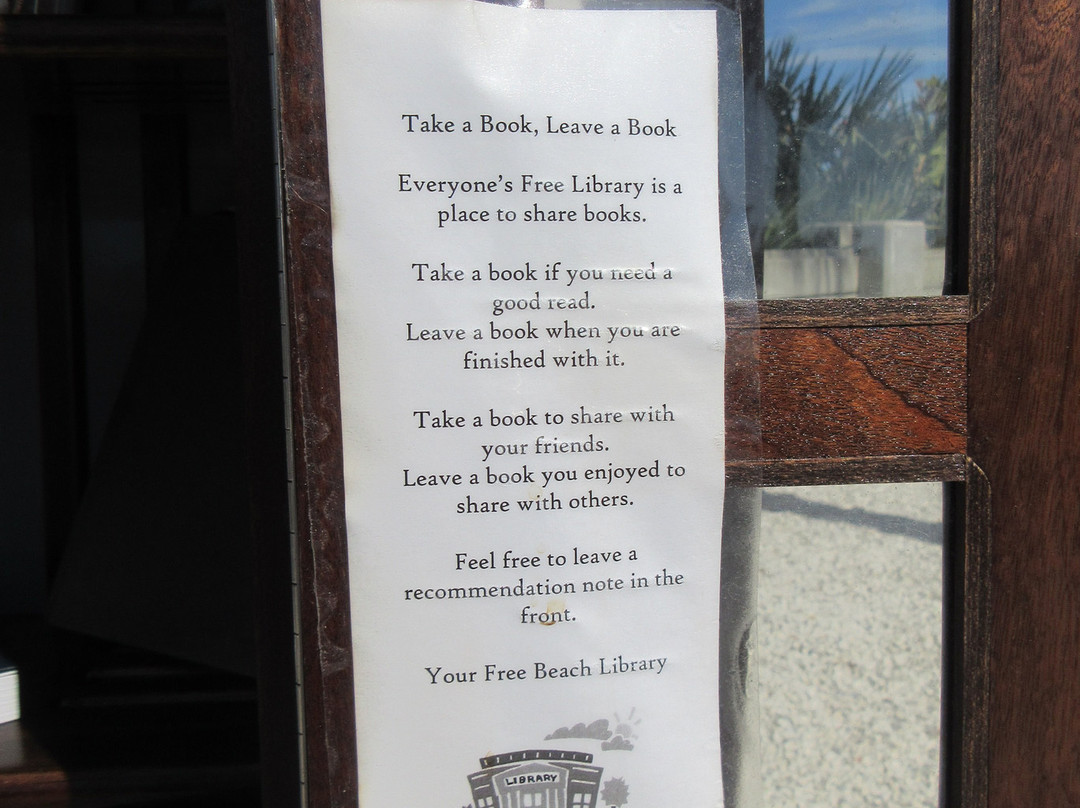 Take a Book, Leave a Book
Everyone's Free Library is a
place to share books.
Take a book if you need a
good read.
Leave a book when you are
finished with it.
Take a book to share with
your friends.
Leave a book you enjoyed to
share with others.
Feel free to leave a
recommendation note in the
front.
Your Free Beach Library
LIBRARY